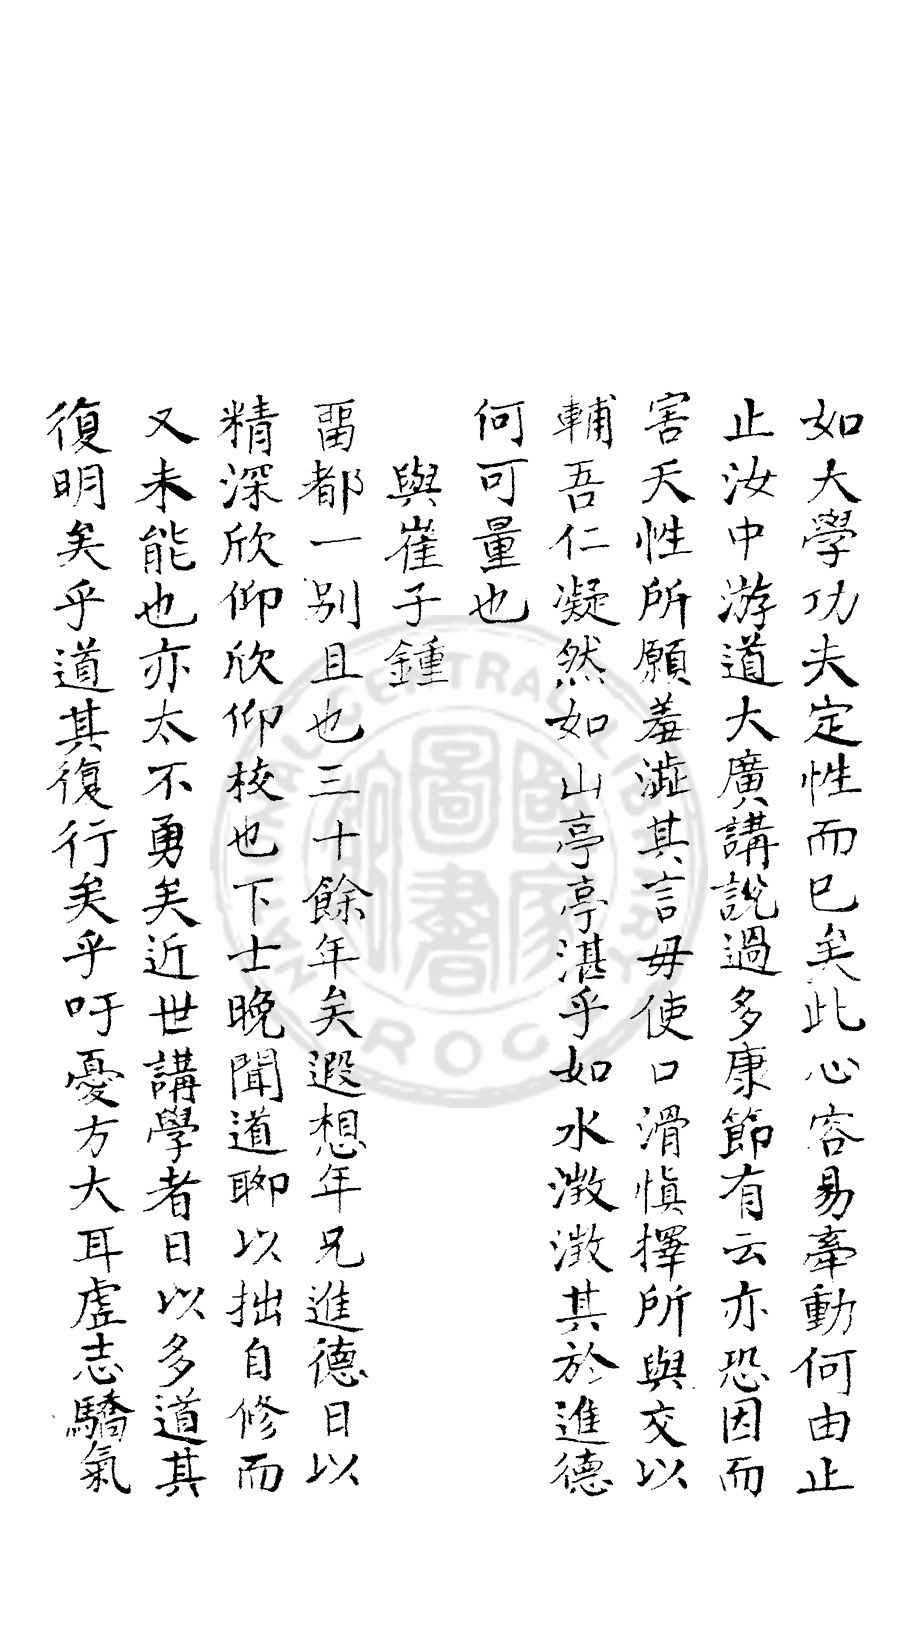 如大學功夫定性而已矣此心容易牽動何由止
止汝中游道大廣講說過多康節有云亦恐因而
害天性所願羞澁其言毋使口滑慎擇所與交以
輔吾仁凝然如山亭亭湛乎如水澂澂其於進德
何可量也
與崔子鍾
畱都一别且也三十餘年矣遐想年兄進德日以
精深欣仰欣仰校也下士晚聞道聊以拙自修而
又未能也亦太不勇矣近世講學者日以多道其
復明矣乎道其復行矣乎吁憂方大耳虛志驕氣
NATIONAL CENTRAL LIBRARY
R.O.C
國家圖書館